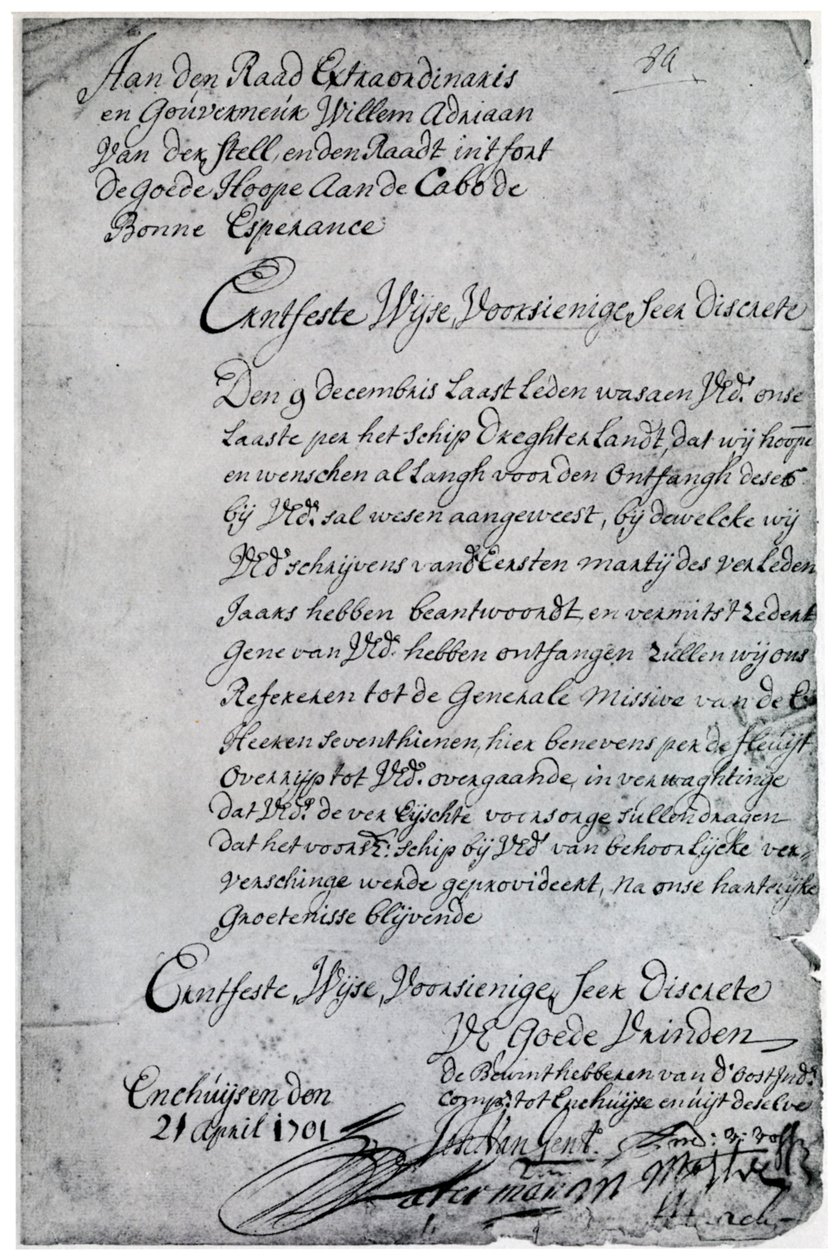 84
Aan den Raad Extraordinaris
en Gouverneur Willem Adriaan
Van der Stell, en den Raadt int fort
De goede Hoope Aan de Cabo de
Bonne Esperance
Erntfeste Wijse, Voorsienige, Seer Discrete
Den 9 decembris Laast Leden was aen VEd.s onse
Laaste per het Schip Dreghterlandt, dat wij hoope
en wenschen al Langh voor den Ontfangh deses
bij VEd.s sal wesen aangeweest, bij dewelcke wij
VEd.s schrijvens vand Eersten martij des verleden
Jaars hebben beantwoordt, en vermits t zedert
Gene van VEd.s hebben ontfangen zullen wij ons
Refereren tot de Generale Missive van de E
Heeren Seventhienen, hier benevens per de fleuijt
Overrijp tot VEd.s overgaande, in verwaghtinge
dat VEd.s de ver Eijschte voorsorge sullen dragen
dat het voors: schip bij VEd.s van behoorlijcke ver-
verschinge werde geprovideert, Na onse hartelijke
Groetenisse blijvende
Erntfeste, Wijse, Voorsienige, Seer Discrete
VE Goede Vrinden
de Bewinthebberen van d'Oost Ind.
Comp: tot Enchuijse en uijt deselve
Enchuijsen den
21 April 1701
Jac: van Gent.